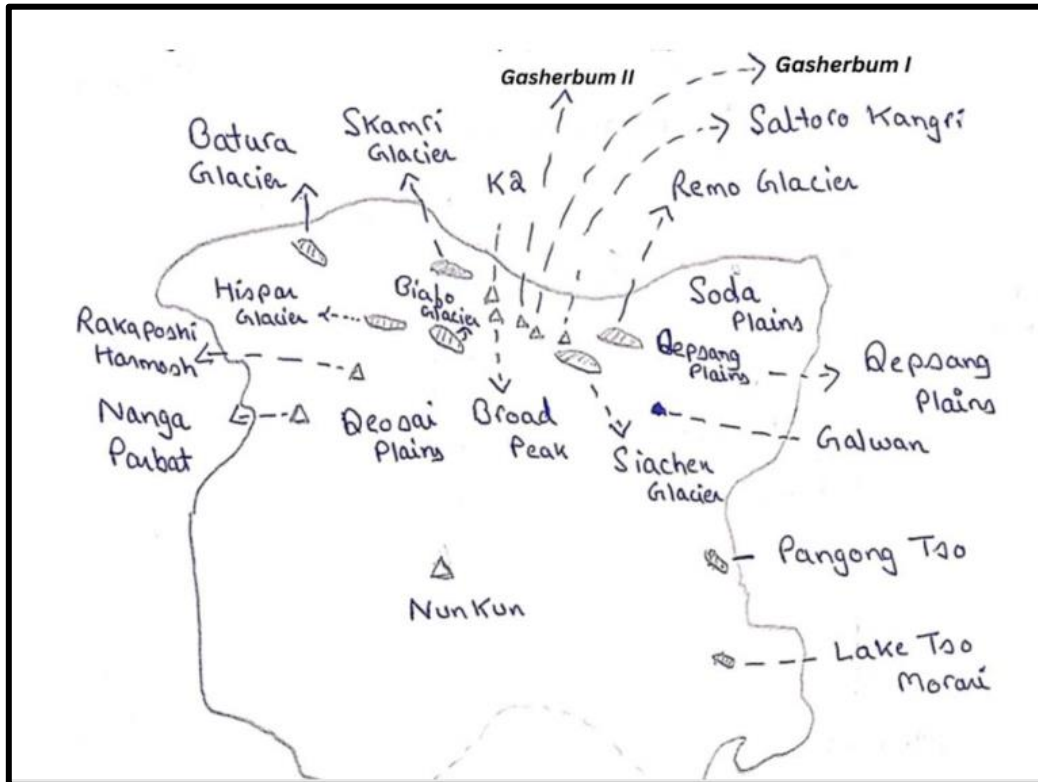 Gasherbum II
Gasherbum I
Saltoro Kangri
Skamri
Glacier
Batura
Glacier
K2
Remo Glacier
Hispar
Glacier
Biafo
Glacier
Soda
Plains
Rakaposhi
Harmosh
Depsang
Plains
Depsang
Plains
Nanga
Parbat
Deosai
Plains
Broad
Peak
Galwan
Siachen
Glacier
Pangong Tso
Nun Kun
Lake Tso
Morari